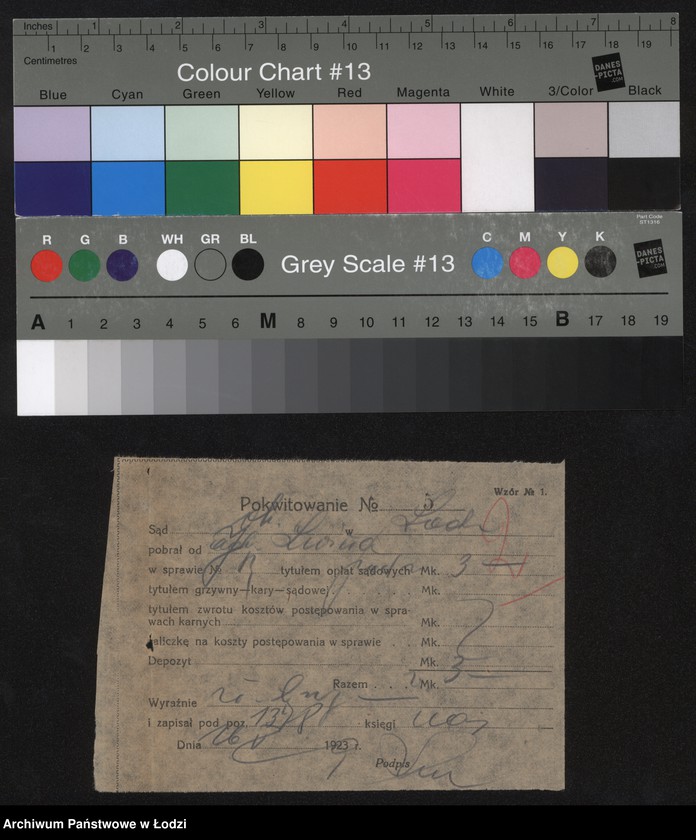 Inches 1 2 3 4 5 6 7 8
1 2 3 4 5 6 7 8 9 10 11 12 13 14 15 16 17 18 19
Centimetres
Colour Chart #13
DANES
-PICTA
.COM
Blue Cyan Green Yellow Red Magenta White 3/Color Black
Part Code
ST1316
R G B WH GR BL
Grey Scale #13
C M Y K
DANES
-PICTA
.COM
A 1 2 3 4 5 6 M 8 9 10 11 12 13 14 15 B 17 18 19
Wzór № 1.
Pokwitowanie № 5
Sąd w Łodzi
pobrał od
w sprawie № tytułem opłat sądowych Mk. 3
tytułem grzywny—kary—sądowej Mk.
tytułem zwrotu kosztów postępowania w spra-
wach karnych Mk.
zaliczkę na koszty postępowania w sprawie . . Mk.
Depozyt Mk. 3
Razem . . . Mk.
Wyraźnie
i zapisał pod poz. księgi
Dnia 1923 r.
Podpis
Archiwum Państwowe w Łodzi